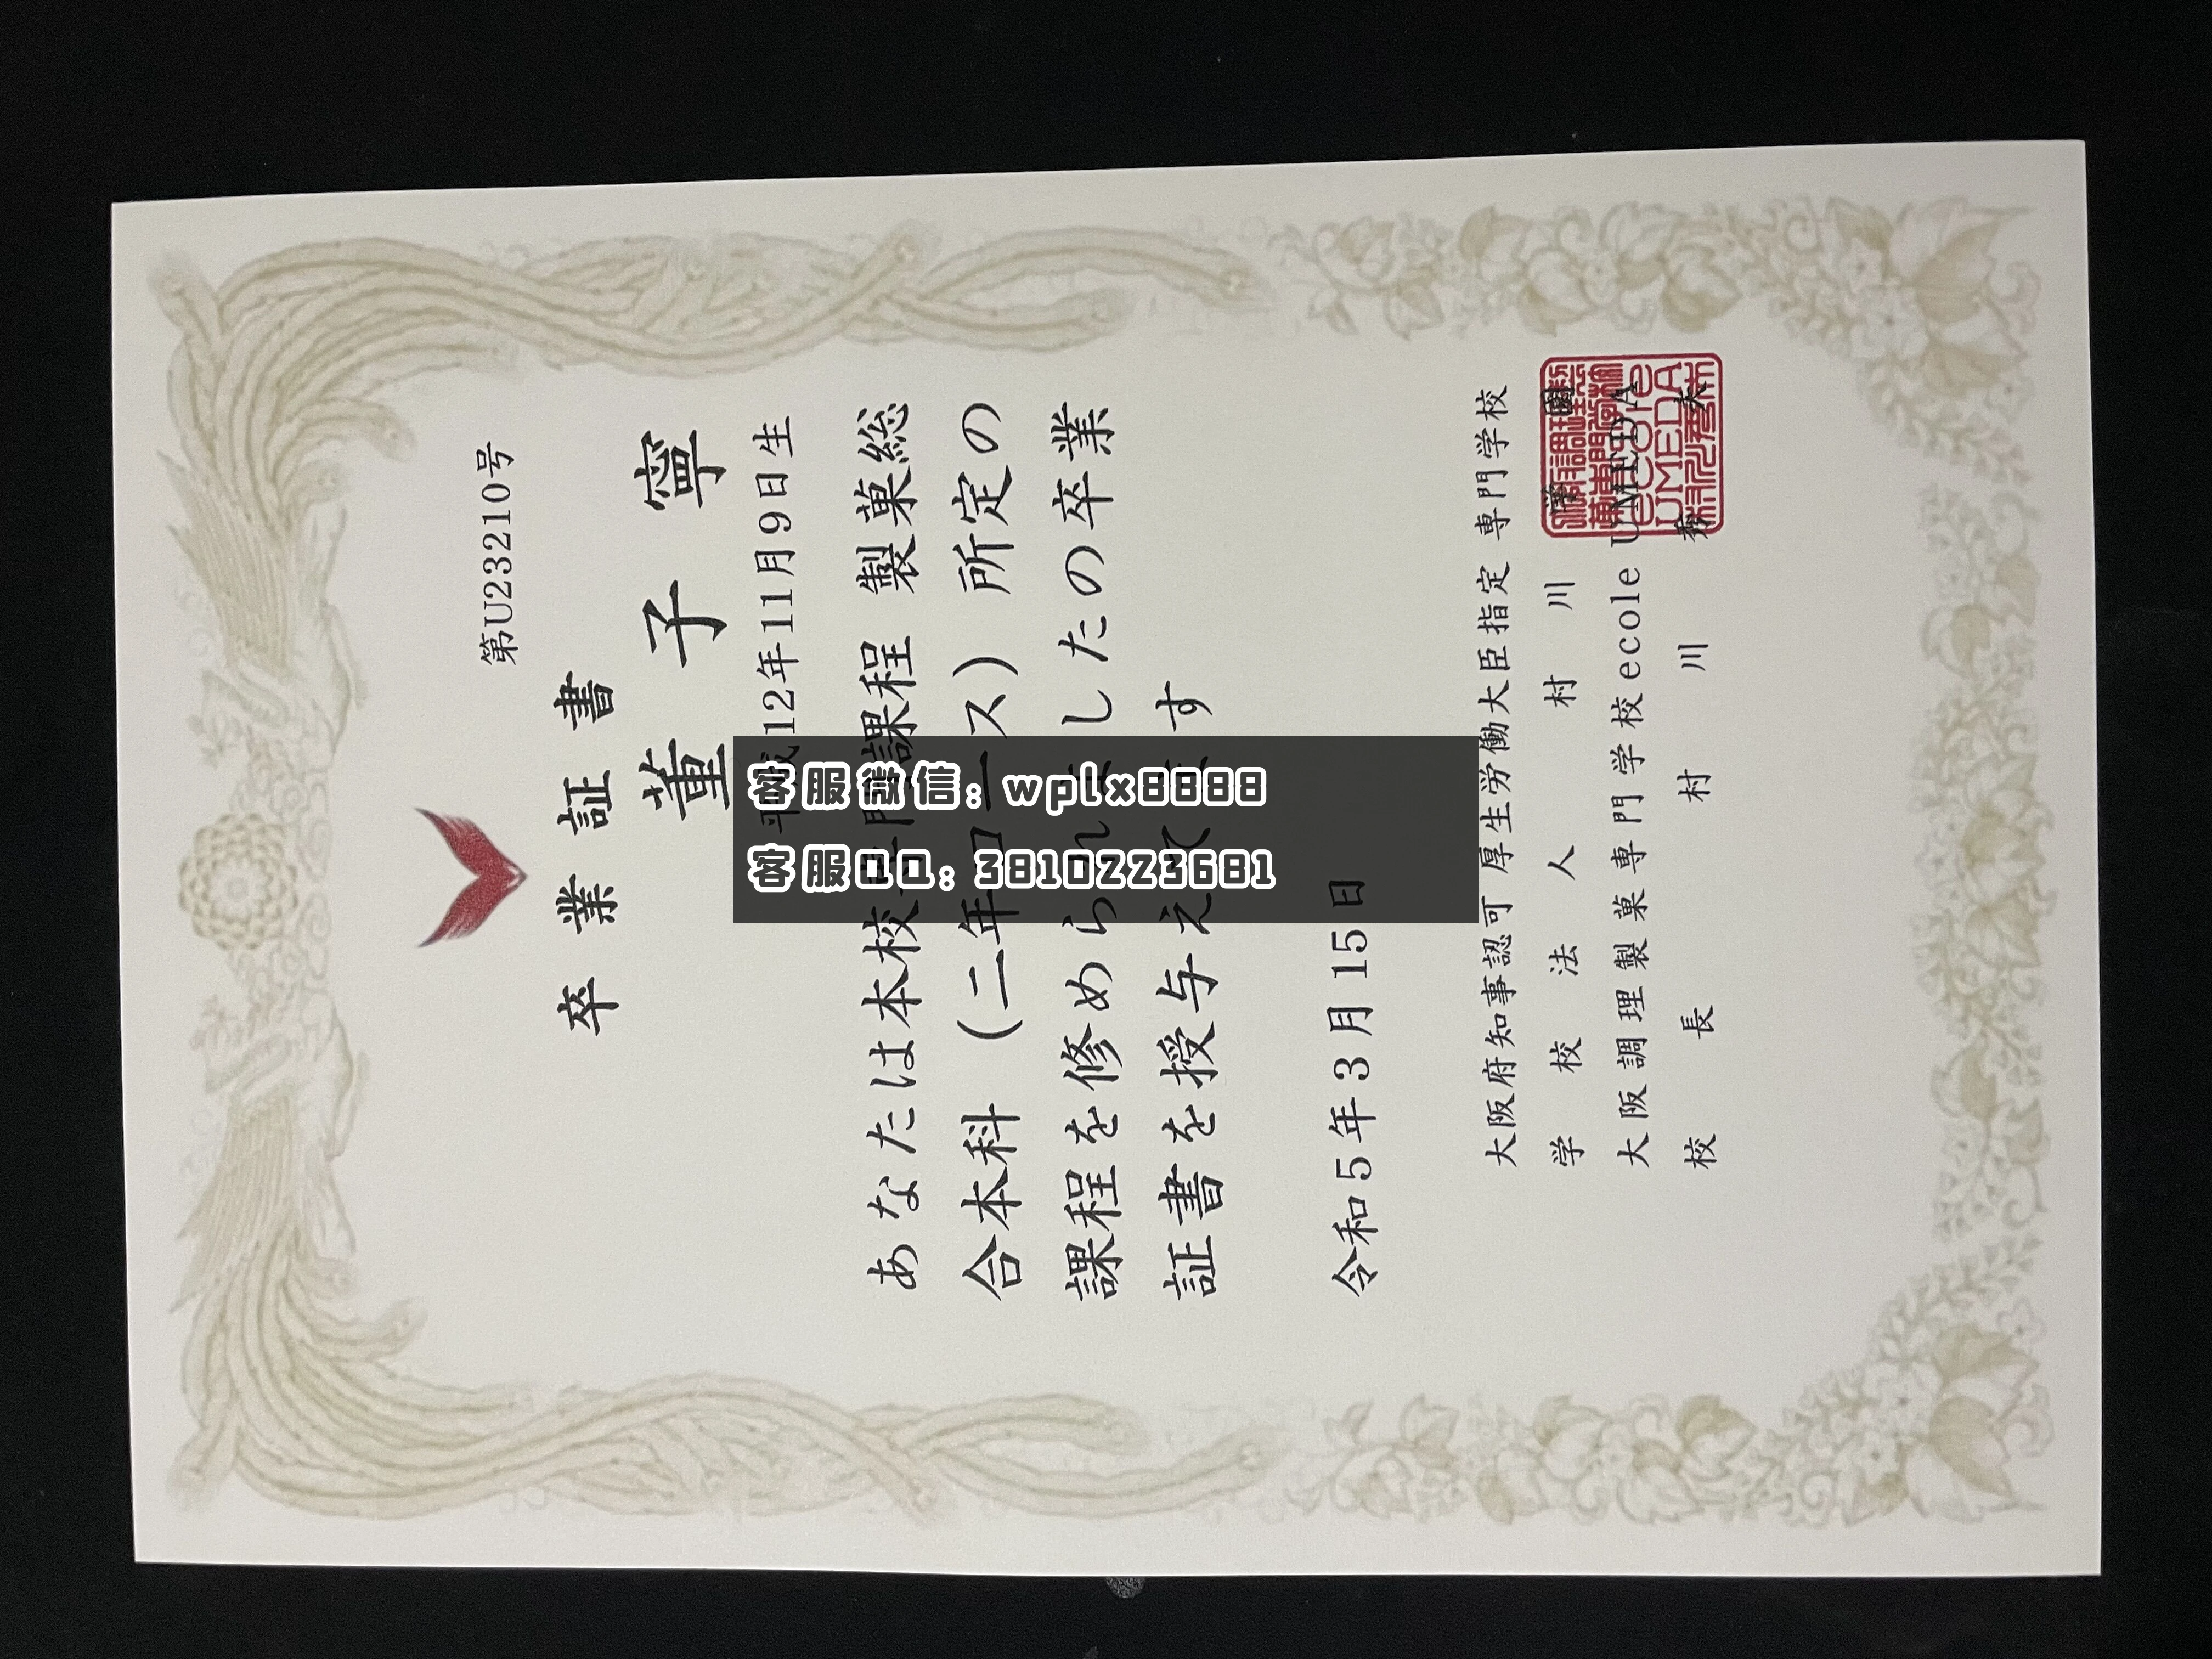 第U23210号
卒業証書
董子寧
平成12年11月9日生
あなたは本校専門課程 製菓総
合本科 (二年コース) 所定の
課程を修められましたの卒業
証書を授与えてます
令和5年3月15日
大阪府知事認可 厚生労働大臣指定 専門学校
学校法人 村川學園
大阪調理製菓専門学校ecole UMEDA
校長 村川秀夫
客服微信: wplx8888
客服QQ: 3810223681